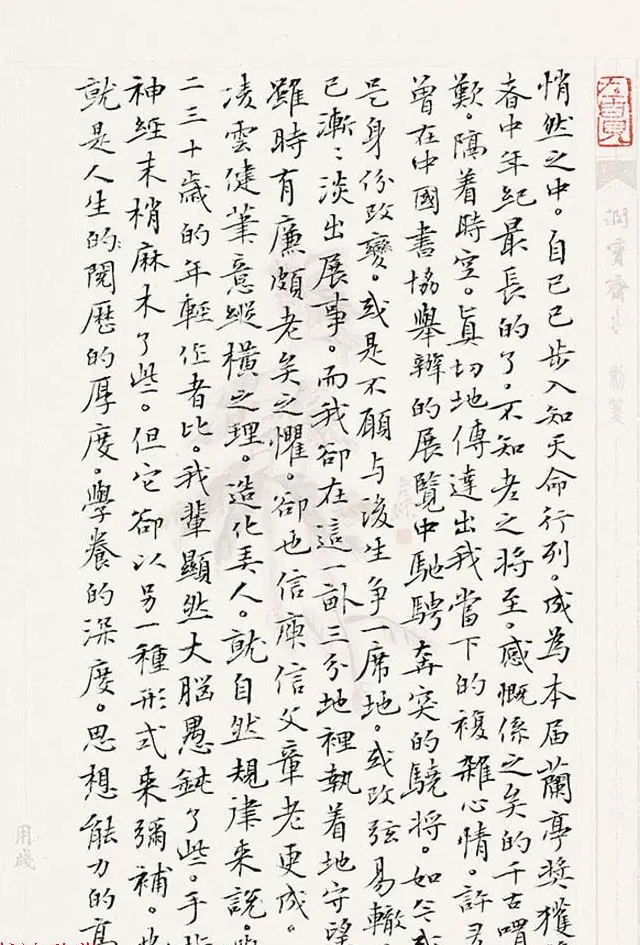 悄然之中。自己已步入知天命行列。成為本屆蘭亭奬獲
者中年紀最長的了。不知老之將至。感慨係之矣的千古喟
歎。隔着時空。真切地傳達出我當下的複雜心情。許
曾在中國書協舉辦的展覽中馳騁奔突的驍將。如今或
是身份改變。或是不願与後生争一席地。或改弦易轍。
已漸〻淡出展事。而我卻在這一畝三分地裡執着地守望
雖時有廉頗老矣之懼。卻也信庾信文章老更成。
凌雲健筆意縱横之理。造化弄人。就自然規律来説。
二三十歲的年輕作者比。我輩顯然大腦愚鈍了些。手指
神經末梢麻木了些。但它卻以另一種形式来彌補。
就是人生的閲歷的厚度。學養的深度。思想能力的高
用箋